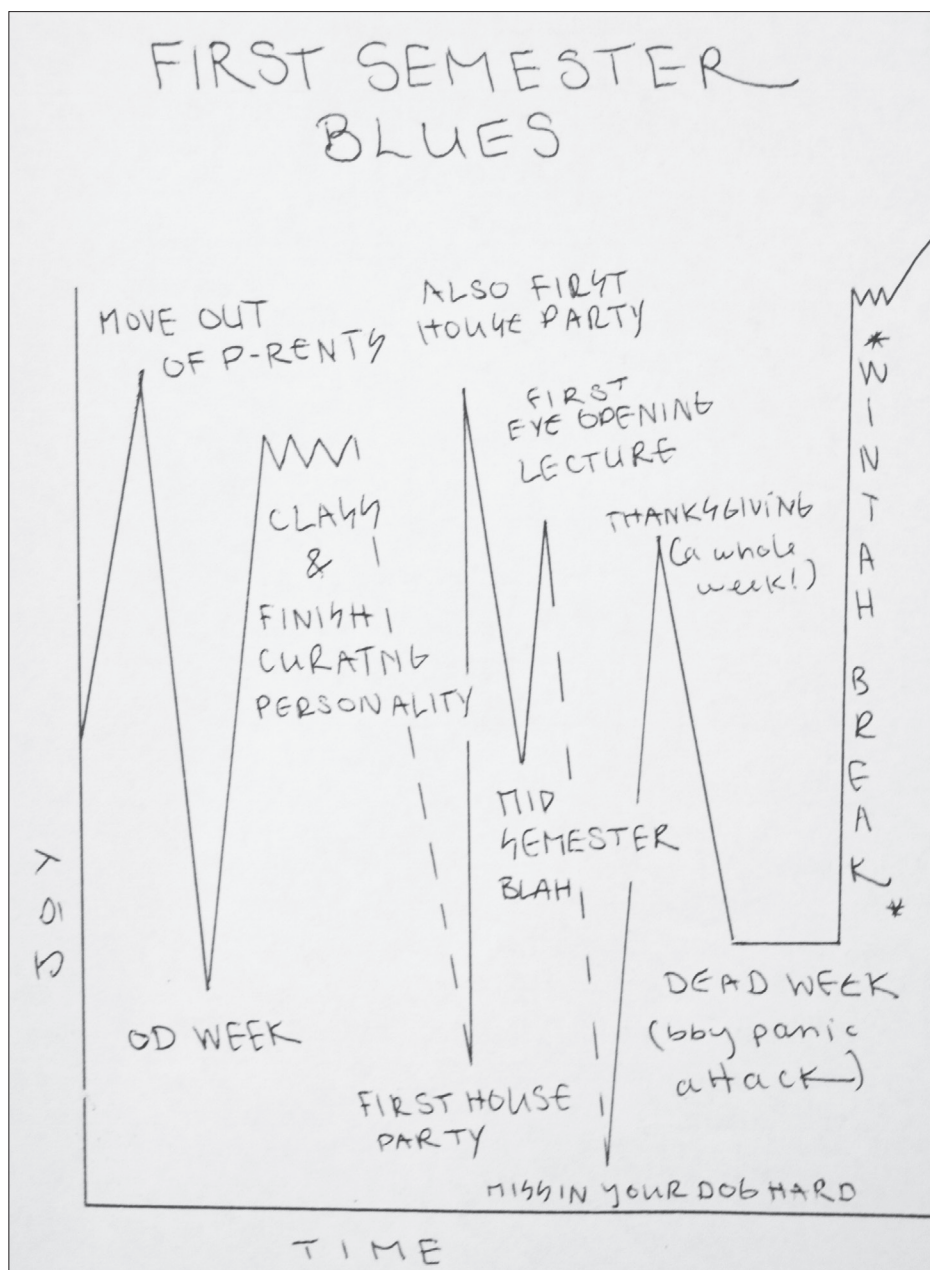 FIRST SEMESTER
BLUES
MOVE OUT
OF P-RENTS
ALSO FIRST
HOUSE PARTY
FIRST
EYE OPENING
LECTURE
CLASS
&
FINISH
CURATNG
PERSONALITY
THANKSGIVING
(a whole
week!)
*WINTAH BREAK*
MID
SEMESTER
BLAH
JOY
OD WEEK
DEAD WEEK
(bby panic
attack)
FIRST HOUSE
PARTY
MISSIN YOUR DOG HARD
TIME